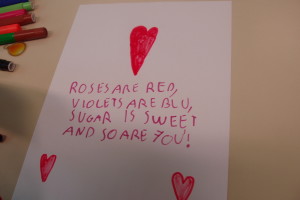 ROSES ARE RED,
VIOLETS ARE BLU,
SUGAR IS SWEET
AND SO ARE YOU!